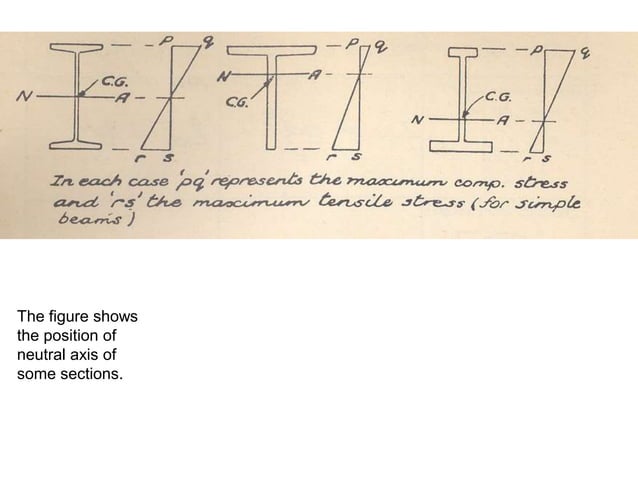 P q P q P q
C.G. N A C.G.
N A C.G. N A
r s r s r s
In each case 'pq' represents the maximum comp. stress
and 'rs' the maximum tensile stress (for simple
beams)
The figure shows
the position of
neutral axis of
some sections.